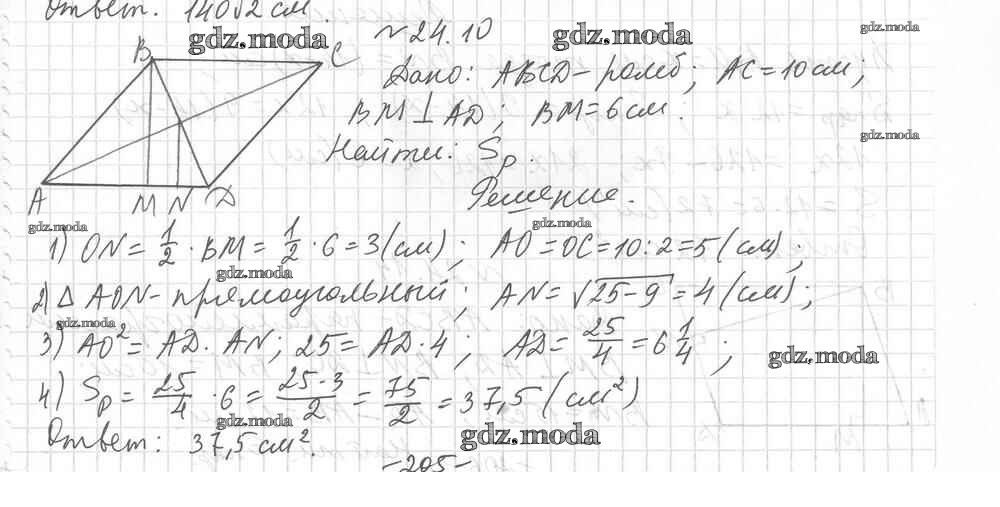 Ответ: 140√2 см.
gdz.moda gdz.moda gdz.moda
№24.10
B C
Дано: ABCD - ромб; AC = 10 см;
BM ⊥ AD; BM = 6 см.
gdz.moda
Найти: Sр.
A M N D
Решение.
gdz.moda gdz.moda
1) ON = 1/2 · BM = 1/2 · 6 = 3 (см); AO = OC = 10 : 2 = 5 (см);
gdz.moda
2) △ AON - прямоугольный; AN = √25-9 = 4 (см);
gdz.moda
3) AO² = AD · AN; 25 = AD · 4; AD = 25/4 = 6 1/4;
gdz.moda
4) Sр = 25/4 · 6 = 25·3/2 = 75/2 = 37,5 (см²)
gdz.moda
Ответ: 37,5 см².
gdz.moda
-205-